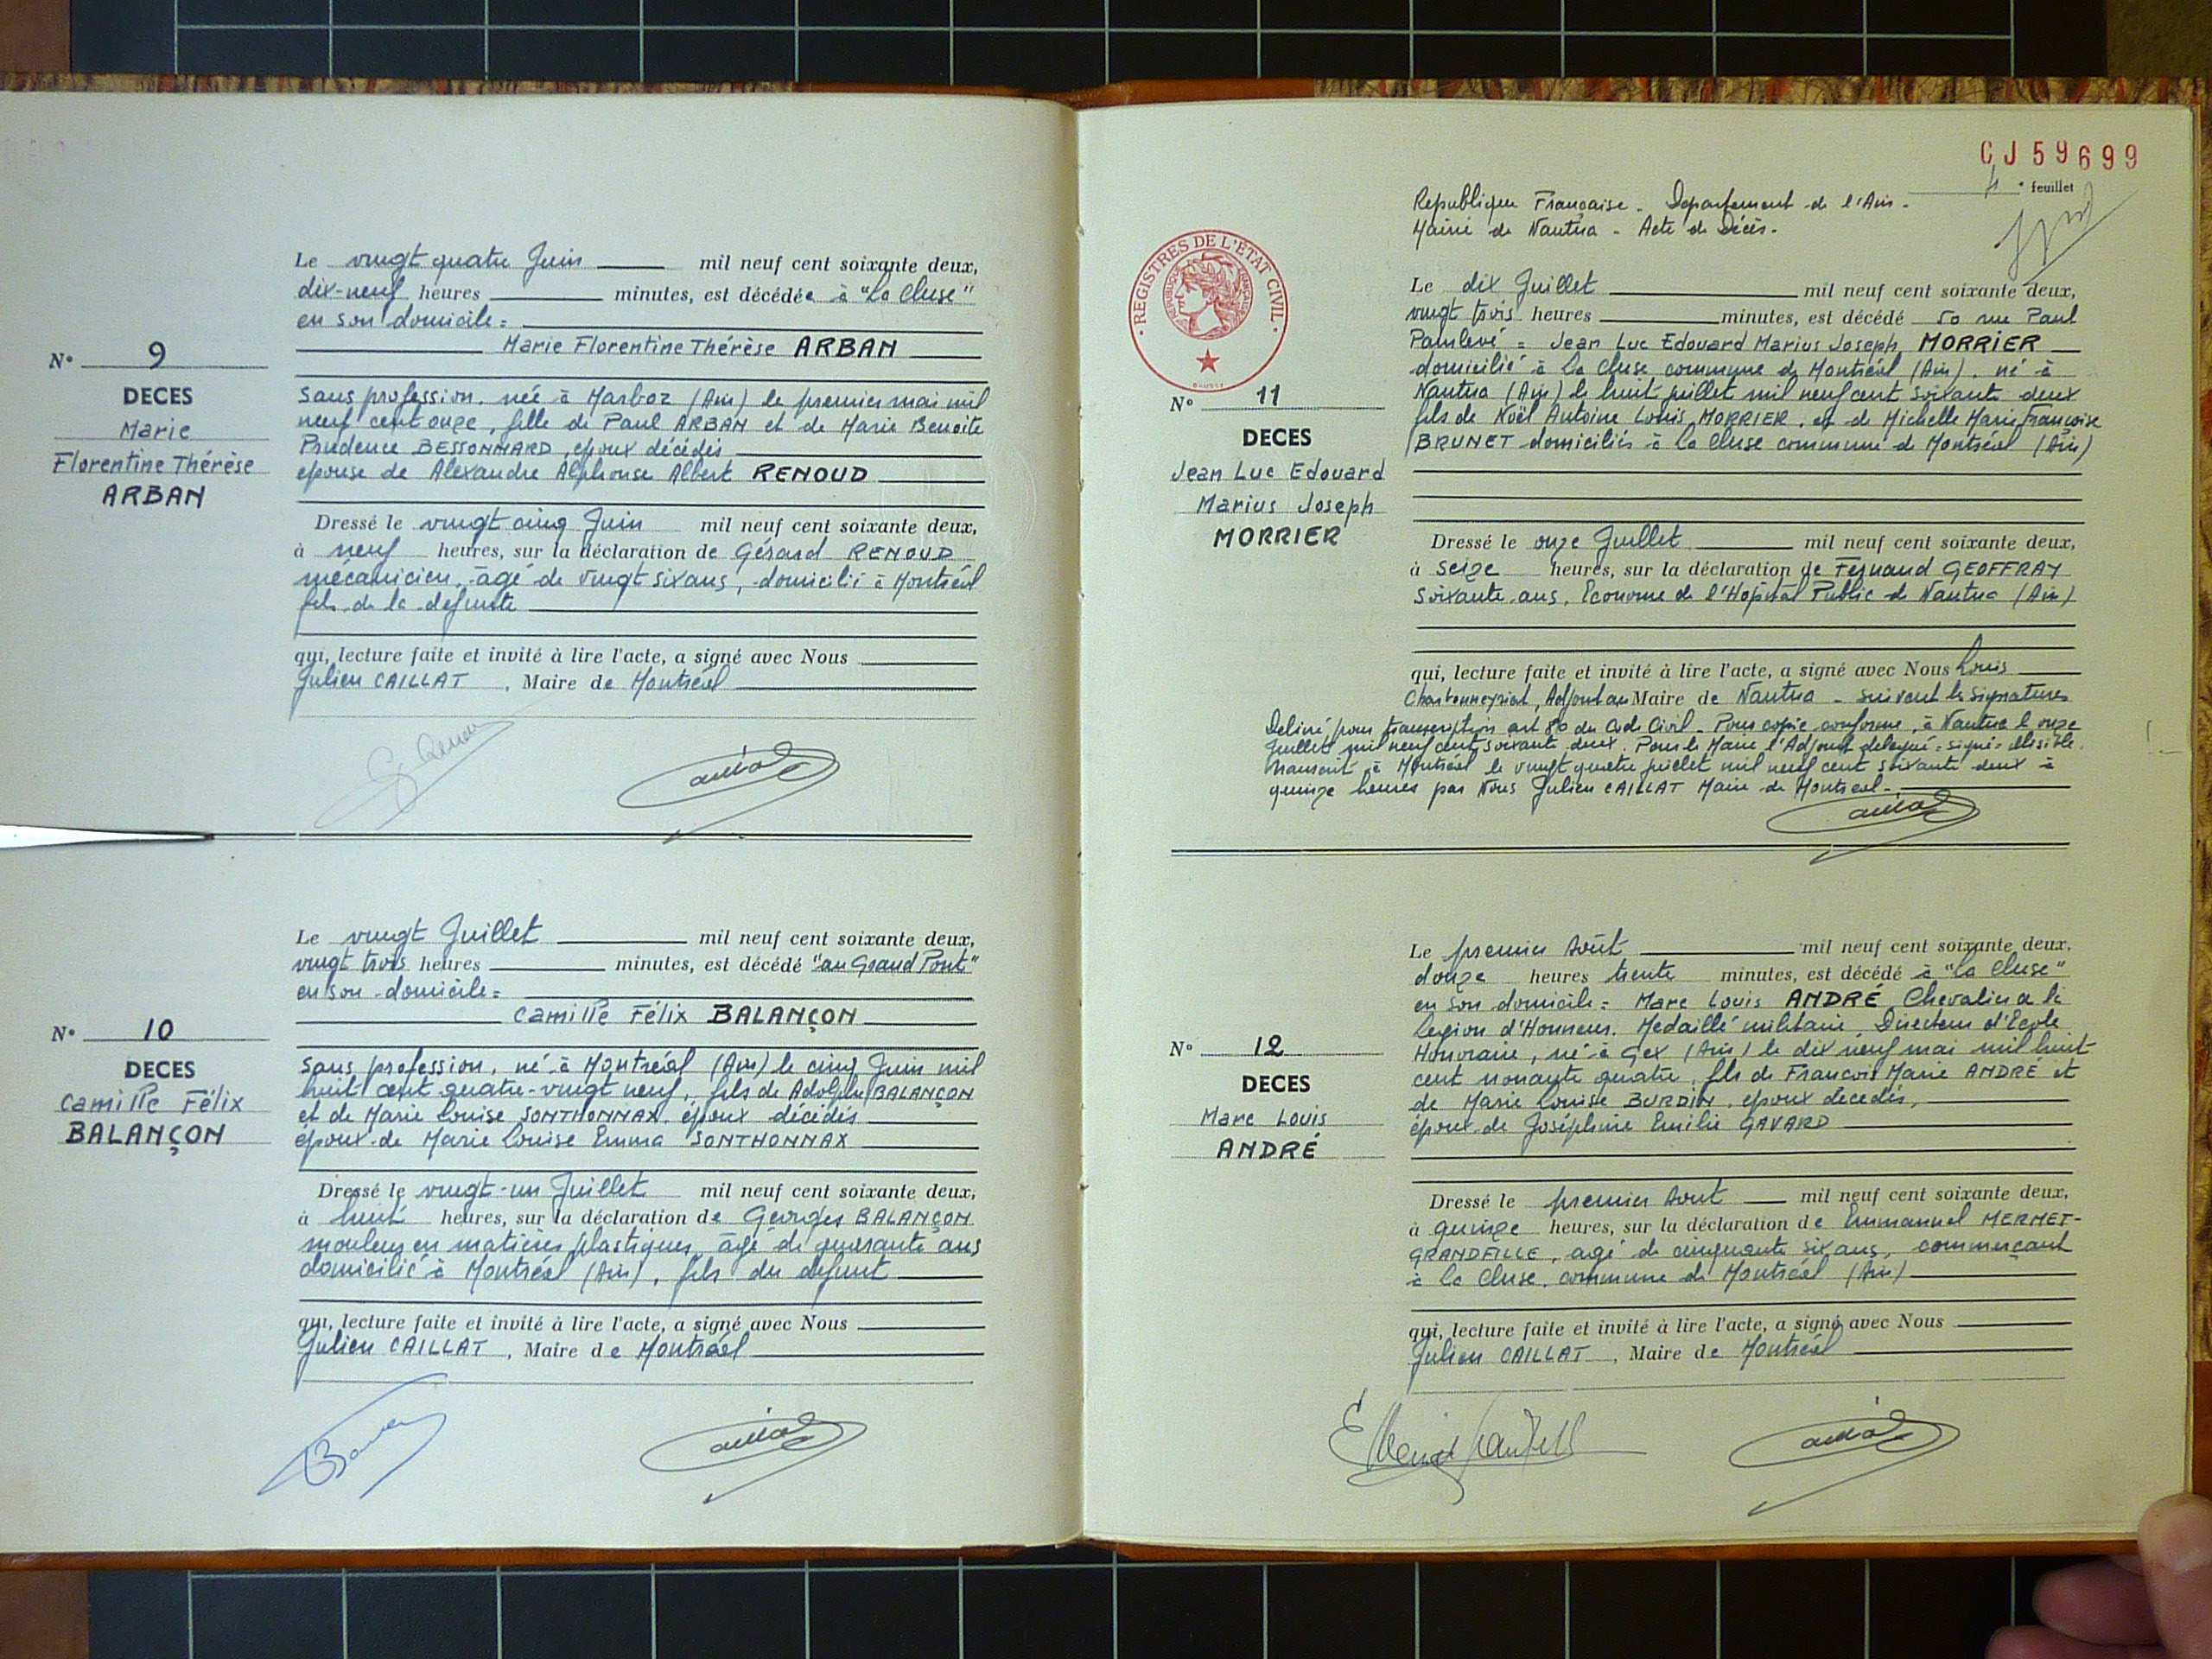 Le vingt quatre Juin mil neuf cent soixante deux,
dix-neuf heures minutes, est décédée à "La Cluse"
en son domicile =
Marie Florentine Thérèse ARBAN
N° 9
DECES
Marie
Florentine Thérèse
ARBAN
sans profession, née à Marboz (Ain) le premier mai mil
neuf cent onze, fille de Paul ARBAN et de Marie Benoite
Prudence BESSONNARD, époux décédés
épouse de Alexandre Alphonse Albert RENOUD
Dressé le vingt cinq Juin mil neuf cent soixante deux,
à neuf heures, sur la déclaration de Gérard RENOUD
mécanicien, âgé de vingt six ans, domicilié à Montréal
fils de la défunte
qui, lecture faite et invité à lire l'acte, a signé avec Nous
Julien CAILLAT, Maire de Montréal
Le vingt Juillet mil neuf cent soixante deux,
vingt trois heures minutes, est décédé "au Grand Pont"
en son domicile =
Camille Félix BALANÇON
N° 10
DECES
Camille Félix
BALANÇON
sans profession, né à Montréal (Ain) le cinq Juin mil
huit cent quatre-vingt neuf, fils de Adolphe BALANÇON
et de Marie Louise SONTHONNAX, époux décédés
époux de Marie Louise Emma SONTHONNAX
Dressé le vingt-un Juillet mil neuf cent soixante deux,
à huit heures, sur la déclaration de Georges BALANÇON
mouleur en matières plastiques, âgé de quarante ans
domicilié à Montréal (Ain), fils du défunt
qui, lecture faite et invité à lire l'acte, a signé avec Nous
Julien CAILLAT, Maire de Montréal
CJ 59699
4 e feuillet
Republique Française - Departement de l'Ain -
Mairie de Nantua - Acte de Décès -
REGISTRES DE L'ÉTAT CIVIL
Le dix Juillet mil neuf cent soixante deux,
vingt trois heures minutes, est décédé 50 rue Paul
Painlevé = Jean Luc Edouard Marius Joseph MORRIER
domicilié à La Cluse commune de Montréal (Ain), né à
Nantua (Ain) le huit juillet mil neuf cent soixante deux
fils de Noël Antoine Louis MORRIER, et de Michelle Marie Françoise
BRUNET domiciliés à La Cluse commune de Montréal (Ain)
N° 11
DECES
Jean Luc Edouard
Marius Joseph
MORRIER
Dressé le onze Juillet mil neuf cent soixante deux,
à seize heures, sur la déclaration de Fernand GEOFFRAY
soixante ans, Econome de l'Hôpital Public de Nantua (Ain)
qui, lecture faite et invité à lire l'acte, a signé avec Nous Louis
Charbonneyriat, Adjoint au Maire de Nantua - suivent les signatures
Délivré pour transcription art 80 du Code Civil - Pour copie conforme, à Nantua le onze
Juillet mil neuf cent soixante deux. Pour le Maire l'Adjoint délégué = signé = illisible.
Transcrit à Montréal le vingt quatre juillet mil neuf cent soixante deux à
quinze heures par Nous Julien CAILLAT Maire de Montreal -
Le premier Août mil neuf cent soixante deux,
douze heures trente minutes, est décédé à "La Cluse"
en son domicile = Marc Louis ANDRÉ, Chevalier de la
Legion d'Honneur, Medaillé militaire, Directeur d'Ecole
Honoraire, né à Gex (Ain) le dix neuf mai mil huit
cent nonante quatre, fils de François Marie ANDRÉ et
de Marie Louise BURDIN, époux décédés,
époux de Joséphine Emilie GAVARD
N° 12
DECES
Marc Louis
ANDRÉ
Dressé le premier Août mil neuf cent soixante deux,
à quinze heures, sur la déclaration de Emmanuel MERMET-
GRANDFILLE, agé de cinquante six ans, commerçant
à la Cluse, commune de Montréal (Ain)
qui, lecture faite et invité à lire l'acte, a signé avec Nous
Julien CAILLAT, Maire de Montréal